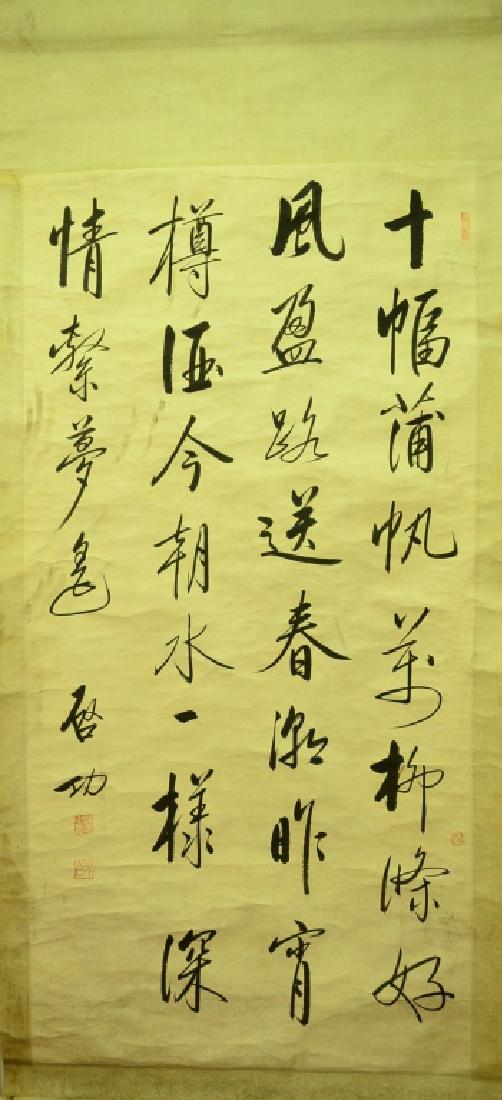 十幅蒲帆萬柳條好
風盈路送春潮昨宵
樽酒今朝水一樣深
情縈夢遙
啟功